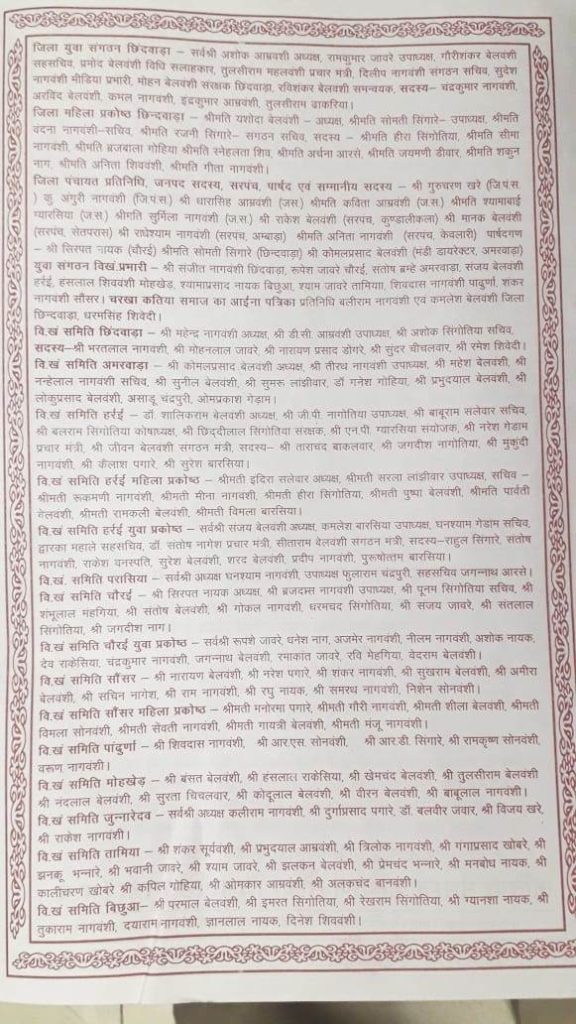 जिला युवा संगठन छिंदवाड़ा – सर्वश्री अशोक आम्रवंशी अध्यक्ष, रामकुमार जावरे उपाध्यक्ष, गौरीशंकर बेलवंशी
सहसचिव, प्रमोद बेलवंशी विधि सलाहकार, तुलसीराम महलवंशी प्रचार मंत्री, दिलीप नागवंशी संगठन सचिव, सुदेश
नागवंशी मीडिया प्रभारी, मोहन बेलवंशी संरक्षक छिंदवाड़ा, रविशंकर बेलवंशी समन्वयक, सदस्य– चंद्रकुमार नागवंशी,
अरविंद बेलवंशी, कमल नागवंशी, इंद्रकुमार आम्रवंशी, तुलसीराम ढाकरिया।
जिला महिला प्रकोष्ठ छिन्दवाड़ा – श्रीमति यशोदा बेलवंशी – अध्यक्ष, श्रीमति सोमती सिंगारे– उपाध्यक्ष, श्रीमति
वंदना नागवंशी–सचिव, श्रीमति रजनी सिंगारे– संगठन सचिव, सदस्य – श्रीमति हीरा सिंगोतिया, श्रीमति सीमा
नागवंशी, श्रीमति ब्रजबाला गोहिया श्रीमति स्नेहलता शिव, श्रीमति अर्चना आरसे, श्रीमति जयमणी डीवार, श्रीमति शकुन
नाग, श्रीमति अनिता शिववंशी, श्रीमति गीता नागवंशी।
जिला पंचायत प्रतिनिधि, जनपद सदस्य, सरपंच, पार्षद एवं सम्मानीय सदस्य – श्री गुरुचरण खरे (जि.पं.स.
) कु अंगुरी नागवंशी (जि.पं.स.) श्री धारासिंह आम्रवंशी (जस.) श्रीमति कविता आम्रवंशी (ज.स.) श्रीमति श्यामाबाई
ग्यारसिया (ज.स.) श्रीमति सुर्मिला नागवंशी (ज.स.) श्री राकेश बेलवंशी (सरपंच, कुण्डालीकला) श्री मानक बेलवंशी
(सरपंच, सेतपरास) श्री राधेश्याम नागवंशी (सरपंच, अम्बाड़ा) श्रीमति अनिता नागवंशी (सरपंच, केवलारी) पार्षदगण
– श्री सिरपत नायक (चौरई) श्रीमति सोमती सिंगारे (छिन्दवाड़ा) श्री कोमलप्रसाद बेलवंशी (मंडी डायरेक्टर, अमरवाड़ा)
युवा संगठन विखं.प्रभारी – श्री संजीत नागवंशी छिंदवाड़ा, रूपेश जावरे चौरई, संतोष ब्रम्हे अमरवाड़ा, संजय बेलवंशी
हर्रई, हंसलाल शिववंशी मोहखेड़, श्यामाप्रसाद नायक बिछुआ, श्याम जावरे तामिया, शिवदास नागवंशी पांढुर्णा, शंकर
नागवंशी सौंसर। चरखा कतिया समाज का आईना पत्रिका प्रतिनिधि बलीराम नागवंशी एवं कमलेश बेलवंशी जिला
छिन्दवाड़ा, धरमसिंह शिवेदी।
वि.खं समिति छिंदवाड़ा – श्री महेन्द्र नागवंशी अध्यक्ष, श्री डी.सी. आम्रवंशी उपाध्यक्ष, श्री अशोक सिंगोतिया सचिव,
सदस्य–श्री भरतलाल नागवंशी, श्री मोहनलाल जावरे, श्री नारायण प्रसाद डोंगरे, श्री सुंदर चीचलवार, श्री रमेश शिवेदी।
वि.खं समिति अमरवाड़ा – श्री कोमलप्रसाद बेलवंशी अध्यक्ष, श्री तीरथ नागवंशी उपाध्यक्ष, श्री महेश बेलवंशी, श्री
नन्हेलाल नागवंशी सचिव, श्री सुनील बेलवंशी, श्री सुमरू लांझीवार, डॉ गनेश गोहिया, श्री प्रभुदयाल बेलवंशी, श्री
लोकुप्रसाद बेलवंशी, असाडू चंद्रपुरी, ओमप्रकाश गेड़ाम।
वि.खं समिति हर्रई – डॉ. शालिकराम बेलवंशी अध्यक्ष, श्री जी.पी. नागोतिया उपाध्यक्ष, श्री बाबूराम सलेवार सचिव,
श्री बलराम सिंगोतिया कोषाध्यक्ष, श्री छिद्दीलाल सिंगोतिया संरक्षक, श्री एन.पी. ग्यारसिया संयोजक, श्री नरेश गेड़ाम
प्रचार मंत्री, श्री जीवन बेलवंशी संगठन मंत्री, सदस्य– श्री ताराचंद बाकलवार, श्री जगदीश नागोतिया, श्री मुकुंदी
नागवंशी, श्री कैलाश पगारे, श्री सुरेश बारसिया।
वि.खं समिति हर्रई महिला प्रकोष्ठ – श्रीमती इंदिरा सलेवार अध्यक्ष, श्रीमती सरला लांझीवार उपाध्यक्ष, सचिव –
श्रीमती रूकमणी नागवंशी, श्रीमती मीना नागवंशी, श्रीमती हीरा सिंगोतिया, श्रीमती पुष्पा बेलवंशी, श्रीमति पार्वती
बेलवंशी, श्रीमती रामकली बेलवंशी, श्रीमती विमला बारसिया।
वि.खं समिति हर्रई युवा प्रकोष्ठ – सर्वश्री संजय बेलवंशी अध्यक्ष, कमलेश बारसिया उपाध्यक्ष, घनश्याम गेडाम सचिव,
द्वारका महाले सहसचिव, डॉ. संतोष नागेश प्रचार मंत्री, सीताराम बेलवंशी संगठन मंत्री, सदस्य–राहुल सिंगारे, संतोष
नागवंशी, राकेश वनस्पति, सुरेश बेलवंशी, शरद बेलवंशी, प्रदीप नागवंशी, पुरूषोत्तम बारसिया।
वि.खं. समिति परासिया – सर्वश्री अध्यक्ष घनश्याम नागवंशी, उपाध्यक्ष फुलाराम चंद्रपुरी, सहसचिव जगन्नाथ आरसे।
वि.खं समिति चौरई – श्री सिरपत नायक अध्यक्ष, श्री ब्रजदास नागवंशी उपाध्यक्ष, श्री पूनम सिंगोतिया सचिव, श्री
शंभूलाल महंगिया, श्री संतोष बेलवंशी, श्री गोकल नागवंशी, धरमचंद सिंगोतिया, श्री संजय जावरे, श्री संतलाल
सिंगोतिया, श्री जगदीश नाग।
वि.खं समिति चौरई युवा प्रकोष्ठ – सर्वश्री रूपशे जावरे, धनेश नाग, अजमेर नागवंशी, नीलम नागवंशी, अशोक नायक,
देव राकेसिया, चंद्रकुमार नागवंशी, जगन्नाथ बेलवंशी, रमाकांत जावरे, रवि मेहगिया, वेदराम बेलवंशी।
वि.खं समिति सौंसर – श्री नारायण बेलवंशी, श्री नरेश पगारे, श्री शंकर नागवंशी, श्री सुखराम बेलवंशी, श्री अमीरा
बेलवंशी, श्री सचिन नागेश, श्री राम नागवंशी, श्री रघु नायक, श्री समरथ नागवंशी, निशेन सोनवंशी।
वि.खं समिति सौंसर महिला प्रकोष्ठ – श्रीमती मनोरमा पगारे, श्रीमती गौरी नागवंशी, श्रीमती शीला बेलवंशी, श्रीमती
विमला सोनवंशी, श्रीमती सेवती नागवंशी, श्रीमती गायत्री बेलवंशी, श्रीमती मंजू नागवंशी।
वि.खं समिति पांढुर्णा – श्री शिवदास नागवंशी, श्री आर.एस. सोनवंशी, श्री आर.डी. सिंगारे, श्री रामकृष्ण सोनवंशी,
वरूण नागवंशी।
वि.खं समिति मोहखेड़ – श्री बंसत बेलवंशी, श्री हंसलाल राकेसिया, श्री खेमचंद बेलवंशी, श्री तुलसीराम बेलवंशी
श्री नंदलाल बेलवंशी, श्री सुरता चिचलवार, श्री कोदूलाल बेलवंशी, श्री वीरन बेलवंशी, श्री बाबूलाल नागवंशी।
वि.खं समिति जुन्नारेदव – सर्वश्री अध्यक्ष कलीराम नागवंशी, श्री दुर्गाप्रसाद पगारे, डॉ. बलवीर जवार, श्री विजय खरे,
श्री राकेश नागवंशी।
वि.खं समिति तामिया – श्री शंकर सूर्यवंशी, श्री प्रभुदयाल आम्रवंशी, श्री त्रिलोक नागवंशी, श्री गंगाप्रसाद खोबरे, श्री
झनकू भन्नारे, श्री भवानी जावरे, श्री श्याम जावरे, श्री झलकन बेलवंशी, श्री प्रेमचंद भन्नारे, श्री मनबोध नायक, श्री
कालीचरण खोबरे श्री कपिल गोहिया, श्री ओमकार आम्रवंशी, श्री अलकचंद बानवंशी।
वि.खं समिति बिछुआ– श्री परमाल बेलवंशी, श्री इमरत सिंगोतिया, श्री रेखराम सिंगोतिया, श्री ग्यानशा नायक, श्री
तुकाराम नागवंशी, दयाराम नागवंशी, ज्ञानलाल नायक, दिनेश शिववंशी।